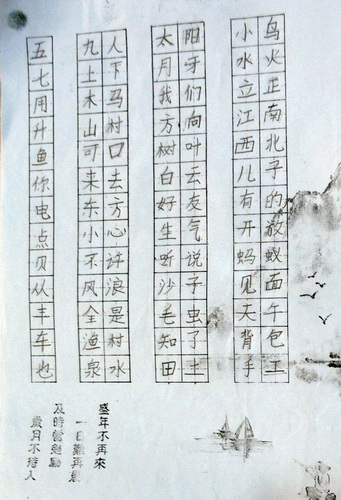 鸟火正南北子的蚁面午包工
小水立江西儿有开蚂见天背手
阳牙们向叶云友气说子虫了土
太月我方树白好生听沙毛知田
人下马村口去方心许浪是村水
九土木山可来东小不风全渔泉
五七用升鱼你电点贝从丰车也
盛年不再來
一日難再晨
及時當勉勵
歲月不待人